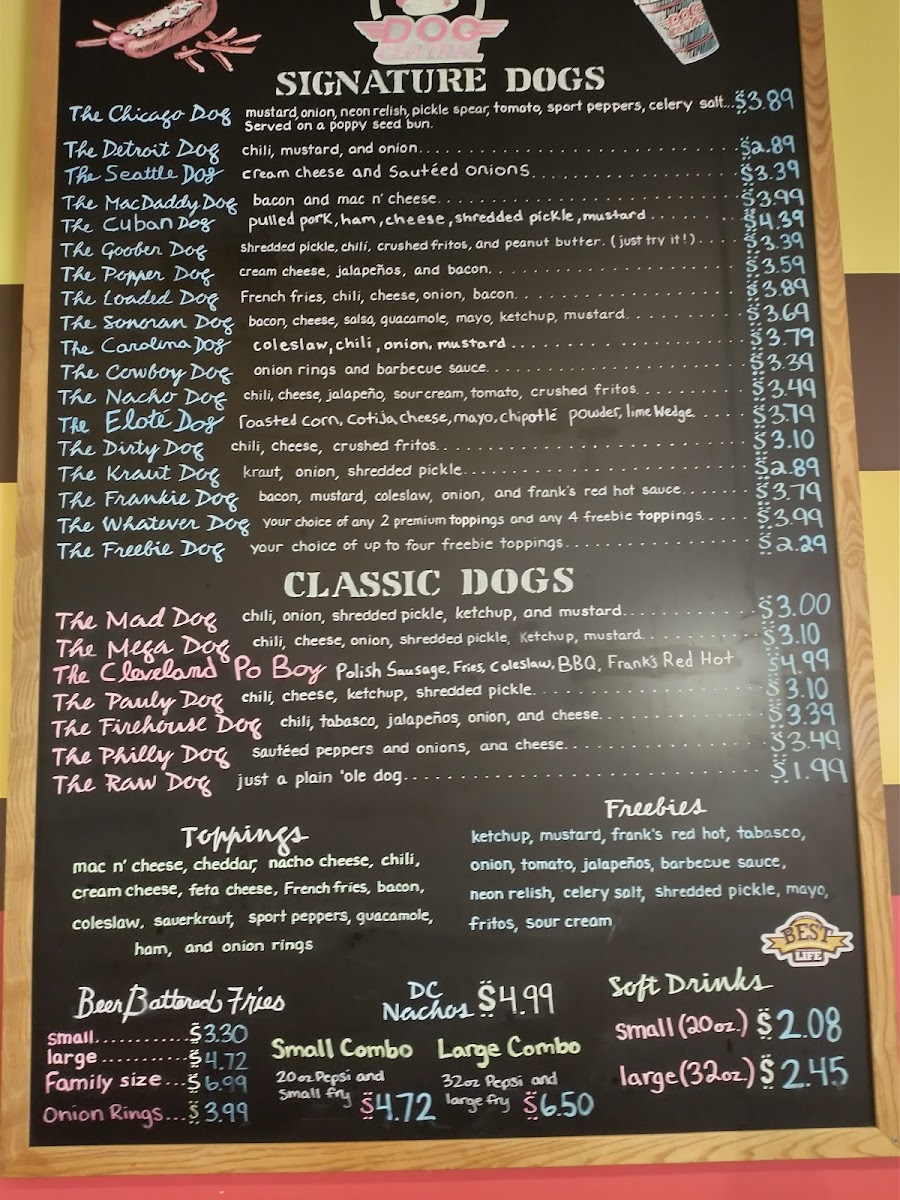 DOG
CENTRAL
SIGNATURE DOGS
The Chicago Dog mustard, onion, neon relish, pickle spear, tomato, sport peppers, celery salt...$3.89
Served on a poppy seed bun.
The Detroit Dog chili, mustard, and onion....$2.89
The Seattle Dog cream cheese and Sautéed onions....$3.39
The MacDaddy Dog bacon and mac n' cheese....$3.99
The Cuban Dog pulled pork, ham, cheese, shredded pickle, mustard....$4.39
The Goober Dog shredded pickle, chili, crushed fritos, and peanut butter. (just try it!)....$3.39
The Popper Dog cream cheese, jalapeños, and bacon....$3.59
The Loaded Dog French fries, chili, cheese, onion, bacon....$3.89
The Sonoran Dog bacon, cheese, salsa, guacamole, mayo, ketchup, mustard....$3.69
The Carolina Dog coleslaw, chili, onion, mustard....$3.79
The Cowboy Dog onion rings and barbecue sauce....$3.39
The Nacho Dog chili, cheese, jalapeño, sour cream, tomato, crushed fritos....$3.49
The Eloté Dog roasted corn, Cotija Cheese, mayo, chipotlé powder, lime wedge....$3.79
The Dirty Dog chili, cheese, crushed fritos....$3.10
The Kraut Dog kraut, onion, shredded pickle....$2.89
The Frankie Dog bacon, mustard, coleslaw, onion, and frank's red hot sauce....$3.79
The Whatever Dog your choice of any 2 premium toppings and any 4 freebie toppings....$3.99
The Freebie Dog your choice of up to four freebie toppings....$2.29
CLASSIC DOGS
The Mad Dog chili, onion, shredded pickle, ketchup, and mustard....$3.00
The Mega Dog chili, cheese, onion, shredded pickle, Ketchup, mustard....$3.10
The Cleveland Po Boy Polish Sausage, Fries, Coleslaw, BBQ, Frank's Red Hot $4.99
The Pauly Dog chili, cheese, ketchup, shredded pickle....$3.10
The Firehouse Dog chili, tabasco, jalapeños, onion, and cheese....$3.39
The Philly Dog sautéed peppers and onions, and cheese....$3.49
The Raw Dog just a plain 'ole dog....$1.99
Toppings
mac n' cheese, cheddar, nacho cheese, chili,
cream cheese, feta cheese, French fries, bacon,
coleslaw, sauerkraut, sport peppers, guacamole,
ham, and onion rings
Freebies
ketchup, mustard, frank's red hot, tabasco,
onion, tomato, jalapeños, barbecue sauce,
neon relish, celery salt, shredded pickle, mayo,
fritos, sour cream
BEST
LIFE
Beer Battered Fries
small....$3.30
large....$4.72
Family size...$6.99
Onion Rings...$3.99
DC
Nachos $4.99
Small Combo
20oz Pepsi and
Small fry $4.72
Large Combo
32oz Pepsi and
large fry $6.50
Soft Drinks
small (20oz.) $2.08
large (32oz.) $2.45